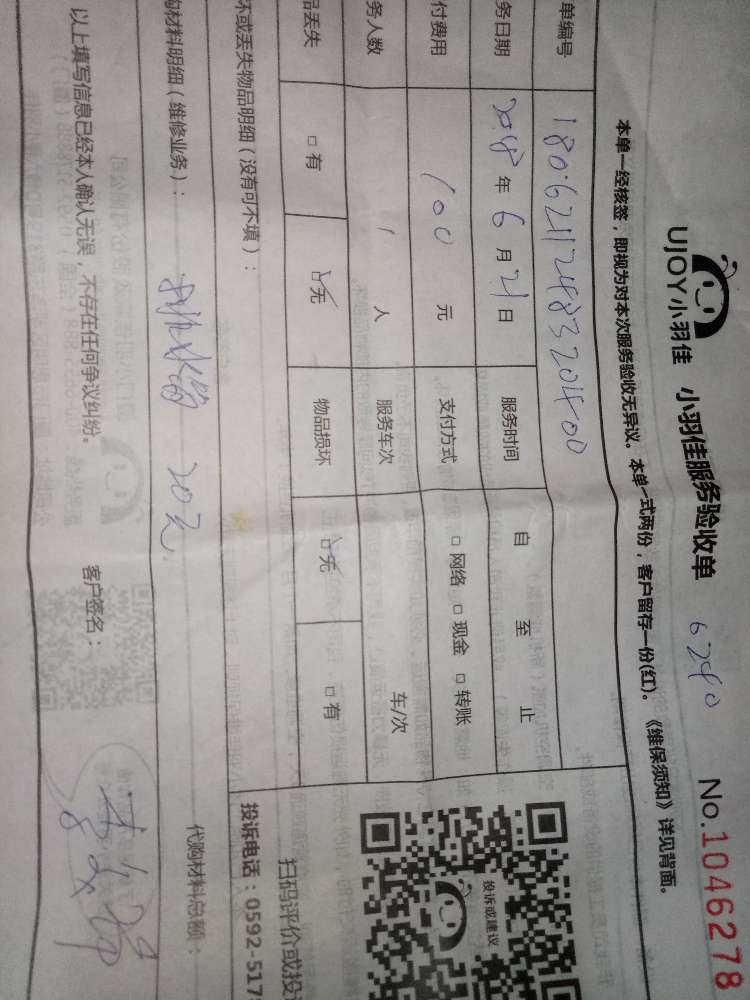 UJOY小羽佳 小羽佳服务验收单 6240 No.1046278
本单一经核签，即视为对本次服务验收无异议。本单一式两份，客户留存一份(红)。《维保须知》详见背面。
单编号 180621124833201400
务日期 2018 年 6 月 21 日 服务时间 自 至 止
付费用 100 元 支付方式 □ 网络 □ 现金 □ 转账
务人数 1 人 服务车次 车/次
品丢失 □ 有 □ 无 物品损坏 □ 无 □ 有
投诉或建议
扫码评价或投
坏或丢失物品明细（没有可不填）： 投诉电话：0592-517
购材料明细（维修业务）： 20元 代购材料总额：
以上填写信息已经本人确认无误，不存在任何争议纠纷。 客户签名：